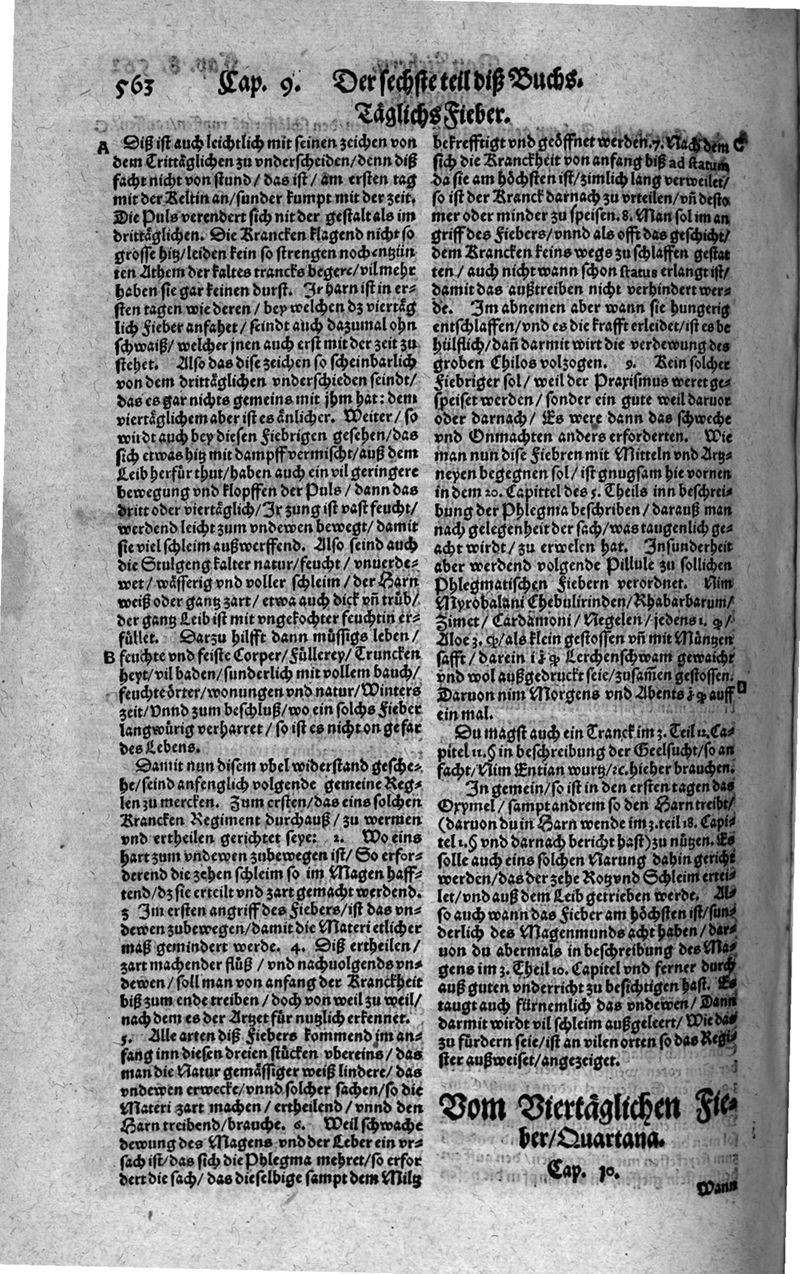 563 Cap. 9. Der sechste teil diß Buchs.
Täglichs Fieber.
A Diß ist auch leichtlich mit seinen zeichen von
dem Trittäglichen zu vnderscheiden/denn diß
facht nicht von stund/das ist/am ersten tag
mit der Keltin an/sunder kumpt mit der zeit.
Die Puls verendert sich nit der gestalt als im
drittäglichen. Die Krancken klagend nicht so
grosse hitz/leiden kein so strengen noch entzün
ten Athem der kaltes trancks begere/vil mehr
haben sie gar keinen durst. Jr harn ist in er-
sten tagen wie deren/bey welchen dz viertäg
lich Fieber anfahet/seindt auch dazumal ohn
schwaiß/welcher jnen auch erst mit der zeit zu
stehet. Also das dise zeichen so scheinbarlich
von dem drittäglichen vnderschieden seindt/
das es gar nichts gemeins mit jhm hat: dem
viertäglichem aber ist es änlicher. Weiter/so
wirdt auch bey diesen Fiebrigen gesehen/das
sich etwas hitz mit dampff vermischt/auß dem
Leib herfür thut/haben auch ein vil geringere
bewegung vnd klopffen der Puls/dann das
dritt oder viertäglich/Jr zung ist vast feucht/
werdend leicht zum vndewen bewegt/damit
sie viel schleim außwerffend. Also seind auch
die Stulgeng kalter natur/feucht/vnuerde-
wet/wässerig vnd voller schleim/der Harn
weiß oder gantz zart/etwa auch dick vñ trüb/
der gantz Leib ist mit vngekochter feuchtin er-
füllet. Darzu hilfft dann müssigs leben/
B feuchte vnd feiste Corper/Füllerey/Truncken
heyt/vil baden/sunderlich mit vollem bauch/
feuchte örter/wonungen vnd natur/Winters
zeit/Vnnd zum beschluß/wo ein solchs Fieber
langwürig verharret/so ist es nicht on gefar
des Lebens.
Damit nun disem vbel widerstand gesche-
he/seind anfenglich volgende gemeine Reg-
len zu mercken. Zum ersten/das eins solchen
Krancken Regiment durchauß/zu wermen
vnd ertheilen gerichtet seye: 2. Wo eins
hart zum vndewen zubewegen ist/So erfor-
derend die zehen schleim so im Magen haff-
tend/dz sie erteilt vnd zart gemacht werdend.
3 Jm ersten angriff des Fiebers/ist das vn-
dewen zubewegen/damit die Materi etlicher
maß gemindert werde. 4. Diß ertheilen/
zart machender flüß/vnd nachuolgends vn-
dewen/soll man von anfang der Kranckheit
biß zum ende treiben/doch von weil zu weil/
nach dem es der Artzet für nutzlich erkennet.
5. Alle arten diß Fiebers kommend im an-
fang inn diesen dreien stücken vbereins/das
man die Natur gemässiger weiß lindere/das
vndewen erwecke/vnnd solcher sachen/so die
Materi zart machen/ertheilend/vnnd den
Harn treibend/brauche. 6. Weil schwache
dewung des Magens vnd der Leber ein vr-
sach ist/das sich die Phlegma mehret/so erfor
dert die sach/das dieselbige sampt dem Miltz
bekrefftigt vnd geöffnet werden. 7. Nach dem C
sich die Kranckheit von anfang biß ad statum
da sie am höchsten ist/zimlich lang verweilet/
so ist der Kranck darnach zu vrteilen/vñ desto
mer oder minder zu speisen. 8. Man sol im an
griff des Fiebers/vnnd als offt das geschicht/
dem Krancken keins wegs zu schlaffen gestat
ten/auch nicht wann schon status erlangt ist/
damit das außtreiben nicht verhindert wer-
de. Jm abnemen aber wann sie hungerig
entschlaffen/vnd es die krafft erleidet/ist es be
hülflich/dañ darmit wirt die verdewung des
groben Chilos volzogen. 9. Kein solcher
Fiebriger sol/weil der Praxismus weret ge-
speiset werden/sonder ein gute weil daruor
oder darnach/Es were dann das schweche
vnd Onmachten anders erforderten. Wie
man nun dise Fiebren mit Mitteln vnd Artz-
neyen begegnen sol/ist gnugsam hie vornen
in dem 20. Capittel des 5. Theils inn beschrei-
bung der Phlegma beschriben/darauß man
nach gelegenheit der sach/was taugenlich ge-
acht wirdt/zu erwelen hat. Jnsunderheit
aber werdend volgende Pillule zu sollichen
Phlegmatischen Fiebern verordnet. Nim
Myrobalani Chebulirinden/Rhabarbarum/
Zimet/Cardamoni/Negelen/jedens 1. ʒ/
Aloe 3. ʒ/als klein gestossen vñ mit Müntzen
safft/darein Lerchenschwam geweicht
vnd wol außgedruckt seie/zusamen gestossen.
Daruon nim Morgens vnd Abents auff D
ein mal.
Du magst auch ein Tranck im 3. Teil 12. Ca-
pitel 11. § in beschreibung der Geelsucht/so an
facht/Nim Entian wurtz/ꝛc. hieher brauchen.
Jn gemein/so ist in den ersten tagen das
Oxymel/sampt andrem so den Harn treibt/
(daruon du in Harn wende im 3. teil 18. Capi-
tel 1. § vnd darnach bericht hast) zu nützen. Es
solle auch eins solchen Narung dahin gericht
werden/das der zehe Rotz vnd Schleim ertei-
let/vnd auß dem Leib getrieben werde. Al-
so auch wann das Fieber am höchsten ist/sun-
derlich des Magenmunds acht haben/dar-
uon du abermals in beschreibung des Ma-
gens im 3. Theil 10. Capitel vnd ferner durch
auß guten vnderricht zu besichtigen hast. Es
taugt auch fürnemlich das vndewen/Dann
darmit wirdt vil schleim außgeleert/Wie das
zu fürdern seie/ist an vilen orten so das Regi-
ster außweiset/angezeiget.
Vom Viertäglichen Fie-
ber/Quartana.
Cap. 10.
Wann